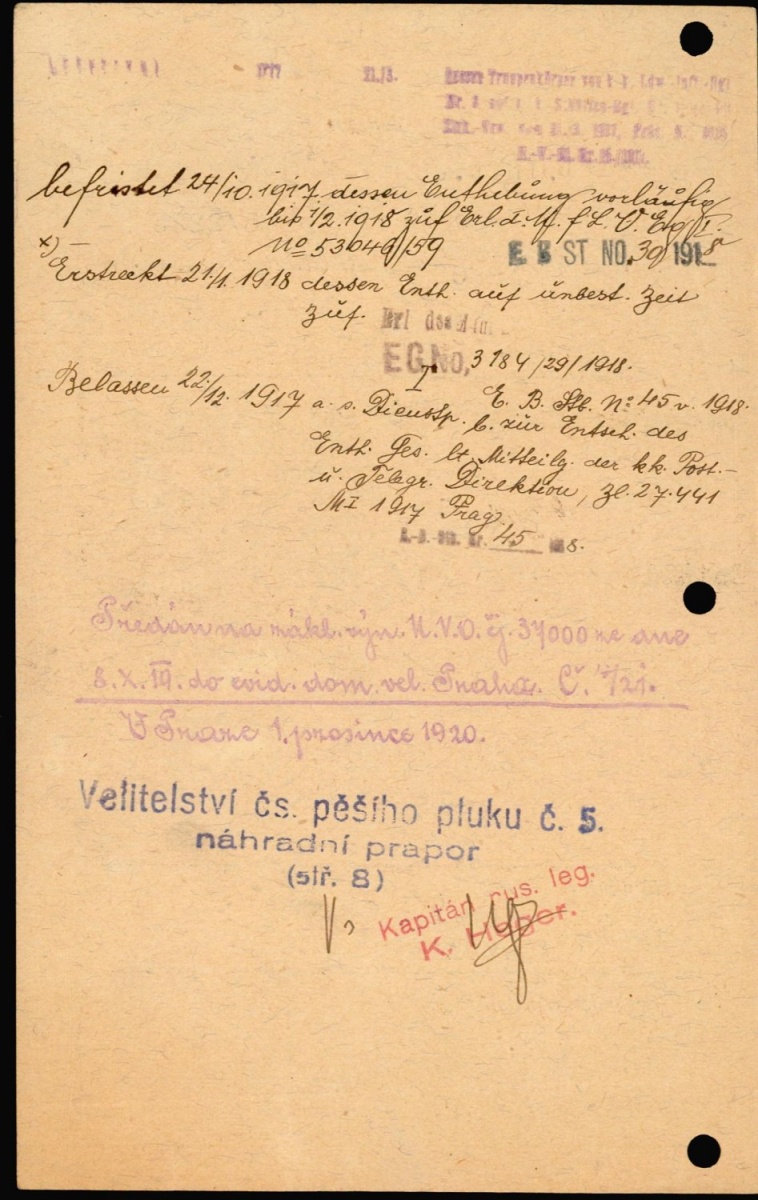 1917 XI./3. Truppenkörper
befristet 24/10.1917 dessen Enthebung vorläufig
bis 1/2.1918 zuf. Erl. d. M. f. L. V. Eg I.
No 53046/59
E B ST NO. 39 1918
x) —
Erstreckt 21./1. 1918 dessen Enth. auf unbest. Zeit
zuf. Erl des Min.
EGNo, 3184/29/1918.
I
Belassen 22./12. 1917 a. s. Dienstp. b. zur Entsch. des
E. B. Stb. No 45 v. 1918.
Enth. Ges. lt. Mitteilg. der kk. Post-
u. Telegr. Direktion, Zl. 27.441
M I 1917 Prag.
45 8.
Předán na zákl. výn. M.V.O. čj. 37000 ze dne
8. X. do evid. dom. vel. Praha. Č. /21.
V Praze 1. prosince 1920.
Velitelství čs. pěšího pluku č. 5.
náhradní prapor
(stř. 8)
Kapitán rus. leg.
K. Heger.